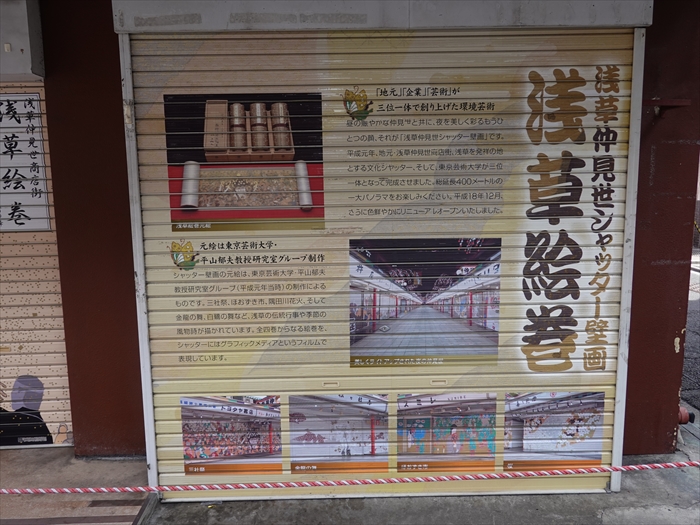 浅草仲見世シャッター壁画
浅草絵巻
「地元」「企業」「芸術」が
三位一体で創り上げた環境芸術
昼の賑やかな仲見世と共に、夜を美しく彩るもうひ
とつの顔、それが「浅草仲見世シャッター壁画」です。
平成元年、地元・浅草仲見世商店街、浅草を発祥の地
とする文化シヤッター、そして、東京芸術大学が三位
一体となって完成させました。総延長400メートルの
一大パノラマをお楽しみください。平成18年12月、
さらに色鮮やかにリニューアルオープンいたしました。
浅草絵巻元絵
元絵は東京芸術大学・
平山郁夫教授研究室グループ制作
シャッター壁画の元絵は、東京芸術大学・平山郁夫
教授研究室グループ(平成元年当時)の制作による
ものです。三社祭、ほおずき市、隅田川花火、そして
金龍の舞、白鷺の舞など、浅草の伝統行事や季節の
風物詩が描かれています。全四巻からなる絵巻を、
シャッターにはグラフィックメディアというフィルムで
表現しています。
美しくライトアップされた夜の仲見世
三社祭
金龍の舞
ほおずき市
浅草仲見世商店街
浅草絵巻